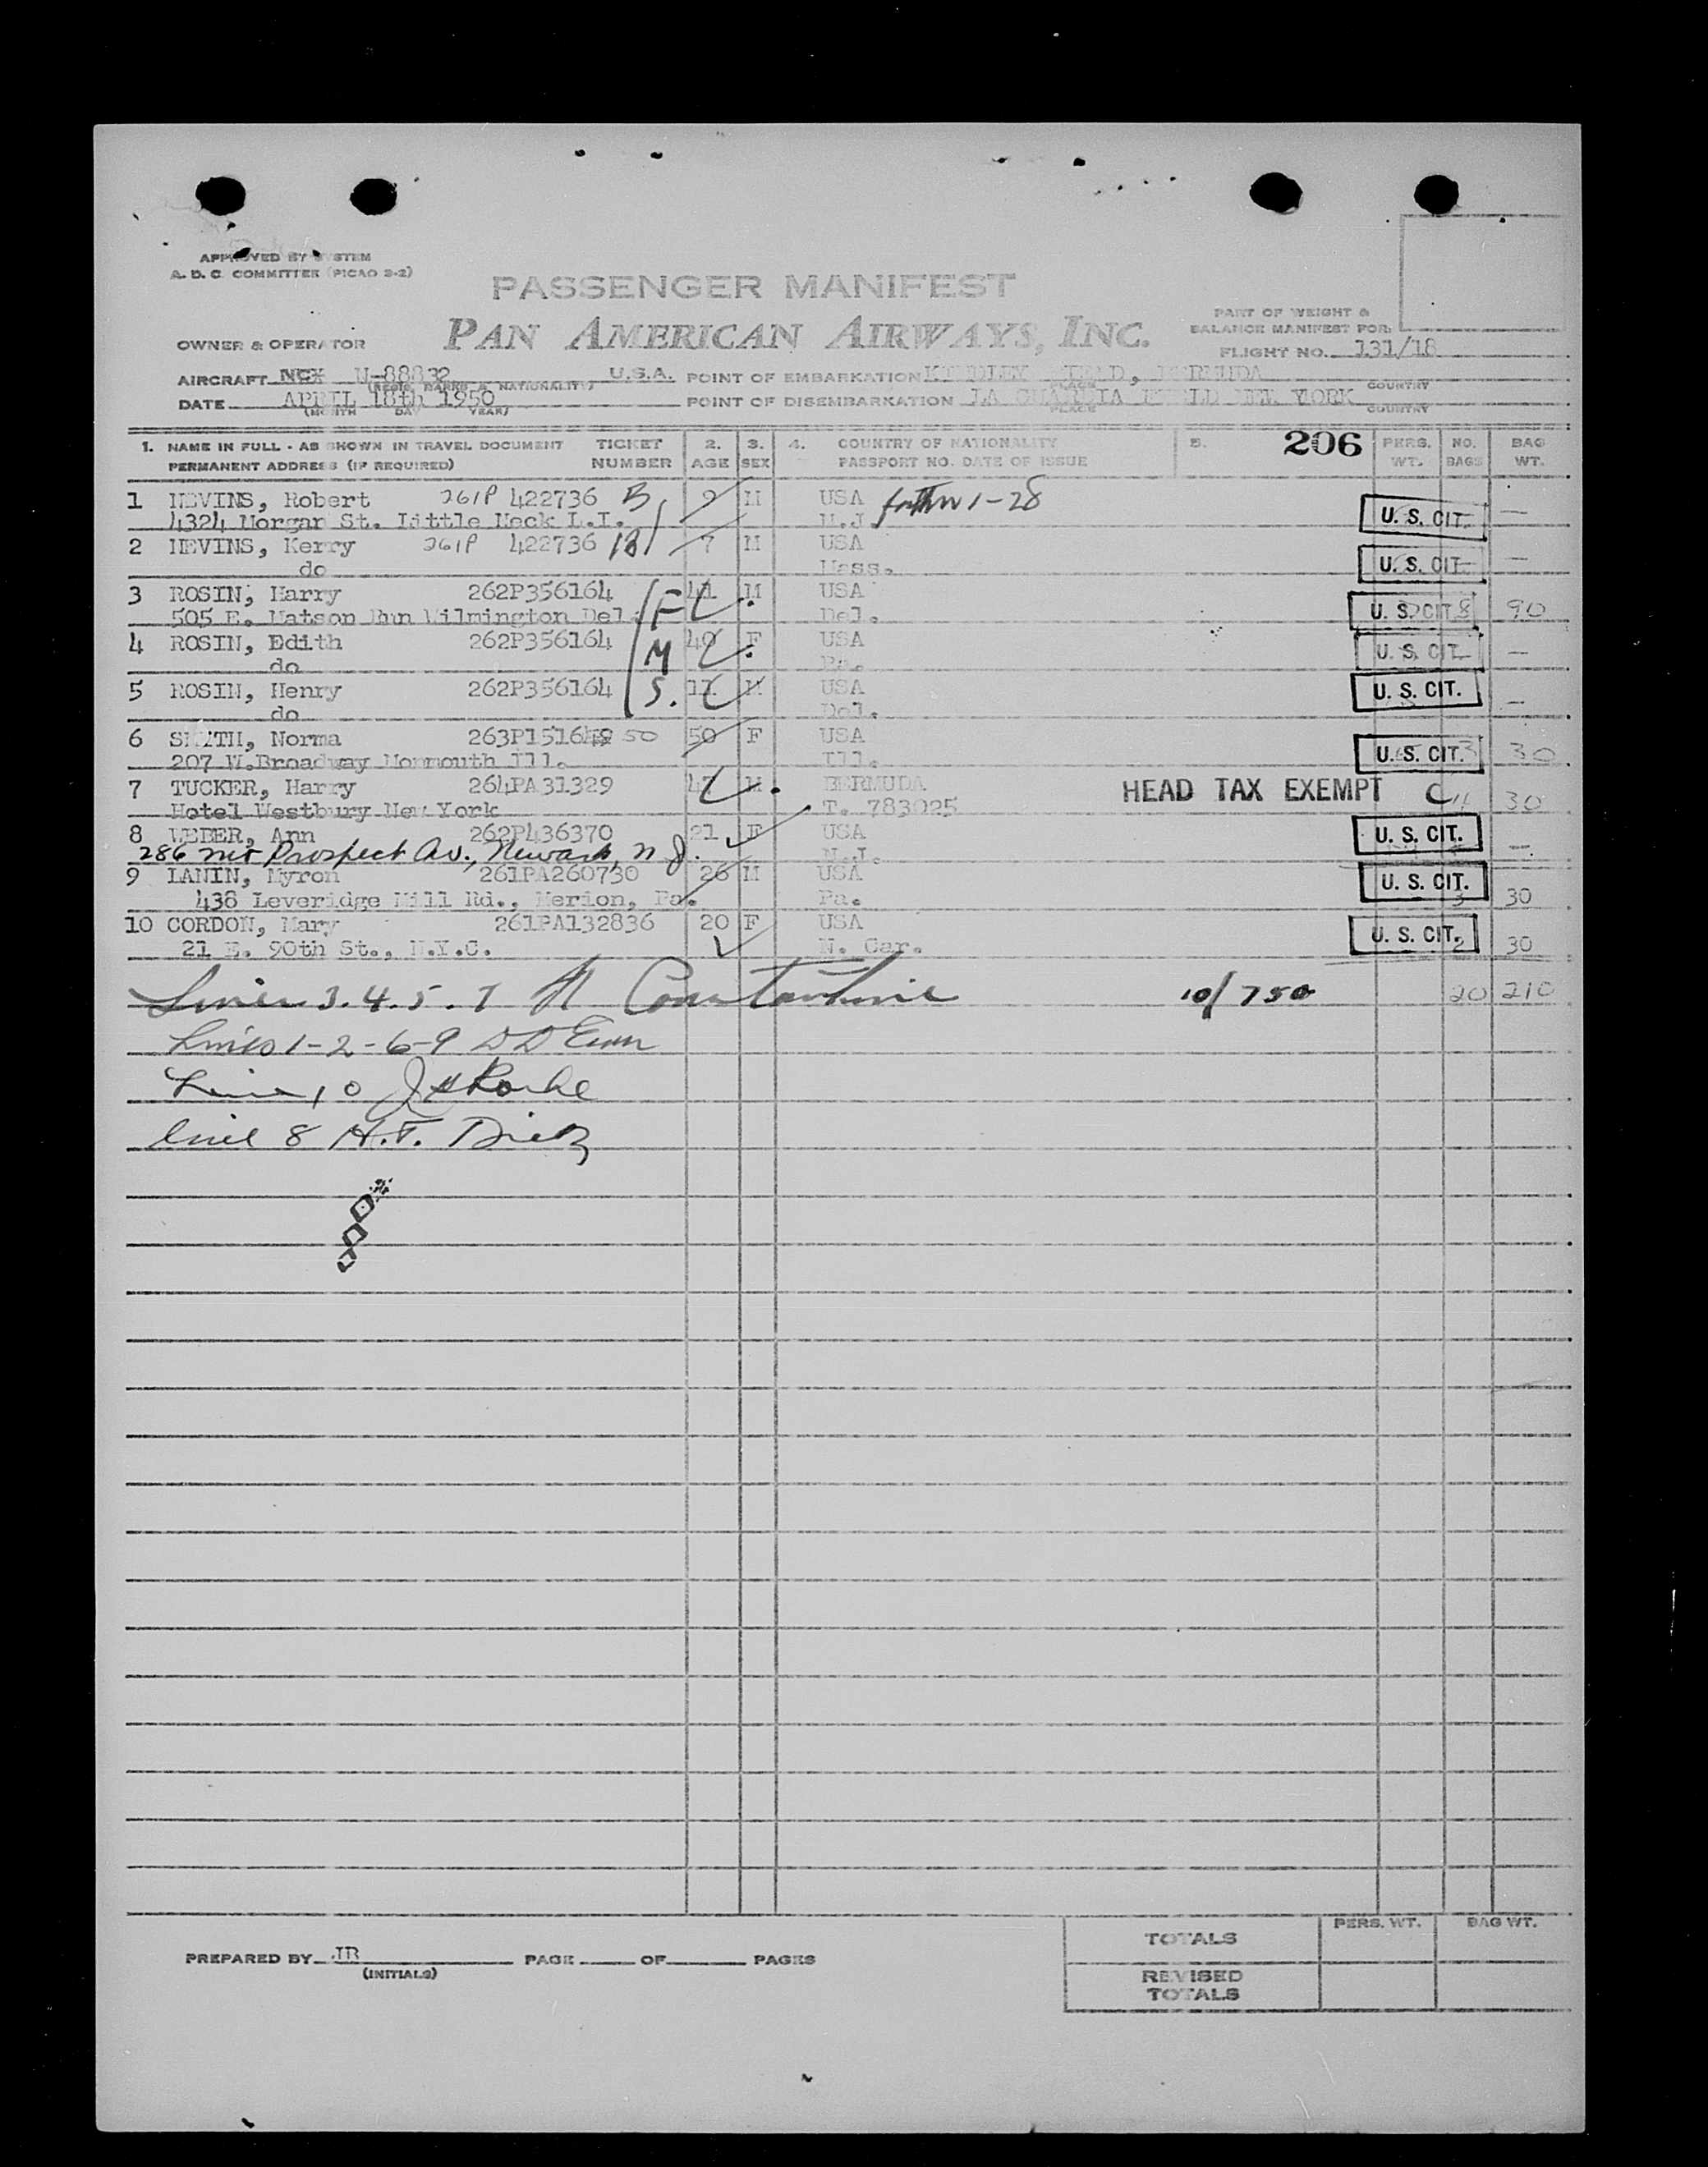 APPROVED BY SYSTEM
A. D. C. COMMITTEE (PICAO 2-2)
PASSENGER MANIFEST
PAN AMERICAN AIRWAYS, INC.
PART OF WEIGHT &
BALANCE MANIFEST FOR
OWNER & OPERATOR
FLIGHT NO. 131/18
AIRCRAFT NCX N-88832 U.S.A. POINT OF EMBARKATION KINDLEY FIELD, BERMUDA
(REGIS. MARKS & NATIONALITY) PLACE COUNTRY
DATE APRIL 18th 1950 POINT OF DISEMBARKATION LA GUARDIA FIELD NEW YORK
(MONTH DAY YEAR) PLACE COUNTRY
1. NAME IN FULL - AS SHOWN IN TRAVEL DOCUMENT TICKET 2. 3. 4. COUNTRY OF NATIONALITY 5. 206 PERS. NO. BAG
PERMANENT ADDRESS (IF REQUIRED) NUMBER AGE SEX PASSPORT NO. DATE OF ISSUE WT. BAGS WT.
1 NEVINS, Robert 261P 422736 B 9 M USA 1-28
4324 Morgan St. Little Neck L.I. N.J. U. S. CIT. —
2 NEVINS, Kerry 261P 422736 B 7 M USA
do Mass. U. S. CIT. —
3 ROSIN, Harry 262P356164 F 41 M USA
505 E. Matson Run Wilmington Del. Del. U. S. CIT. 8 90
4 ROSIN, Edith 262P356164 M 40 F USA
do Pa. U. S. CIT. —
5 ROSIN, Henry 262P356164 S. 11 M USA U. S. CIT.
do Del. —
6 SMITH, Norma 263P151649 50 50 F USA
207 W.Broadway Monmouth Ill. Ill. U. S. CIT. 3 30
7 TUCKER, Harry 264PA31329 47 M BERMUDA HEAD TAX EXEMPT
Hotel Westbury New York T. 783025 4 30
8 WEBER, Ann 262P436370 21 F USA U. S. CIT.
286 Mt Prospect Av., Newark, N.J. N.J. —
9 LANIN, Myron 261PA260730 26 M USA U. S. CIT.
438 Leveridge Mill Rd., Merion, Pa. Pa. 3 30
10 CORDON, Mary 261PA132836 20 F USA U. S. CIT.
21 E. 90th St., N.Y.C. N. Car. 2 30
Lines 3.4.5.7 Constantine 10/750 20 210
Lines 1-2-6-9
Line 10
Line 8 H.T. Dietz
PREPARED BY JR PAGE OF PAGES
(INITIALS)
PERS. WT. BAG WT.
TOTALS
REVISED
TOTALS